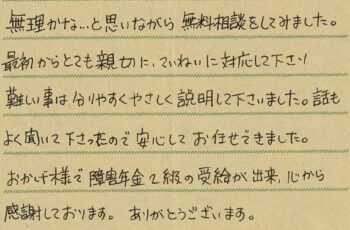 無理かな…と思いながら 無料相談をしてみました。
最初からとても親切に、ていねいに対応して下さり
難しい事は分りやすくやさしく説明して下さいました。話も
よく聞いて下さったので安心してお任せできました。
おかげ様で障害年金2級の受給が出来、心から
感謝しております。ありがとうございます。